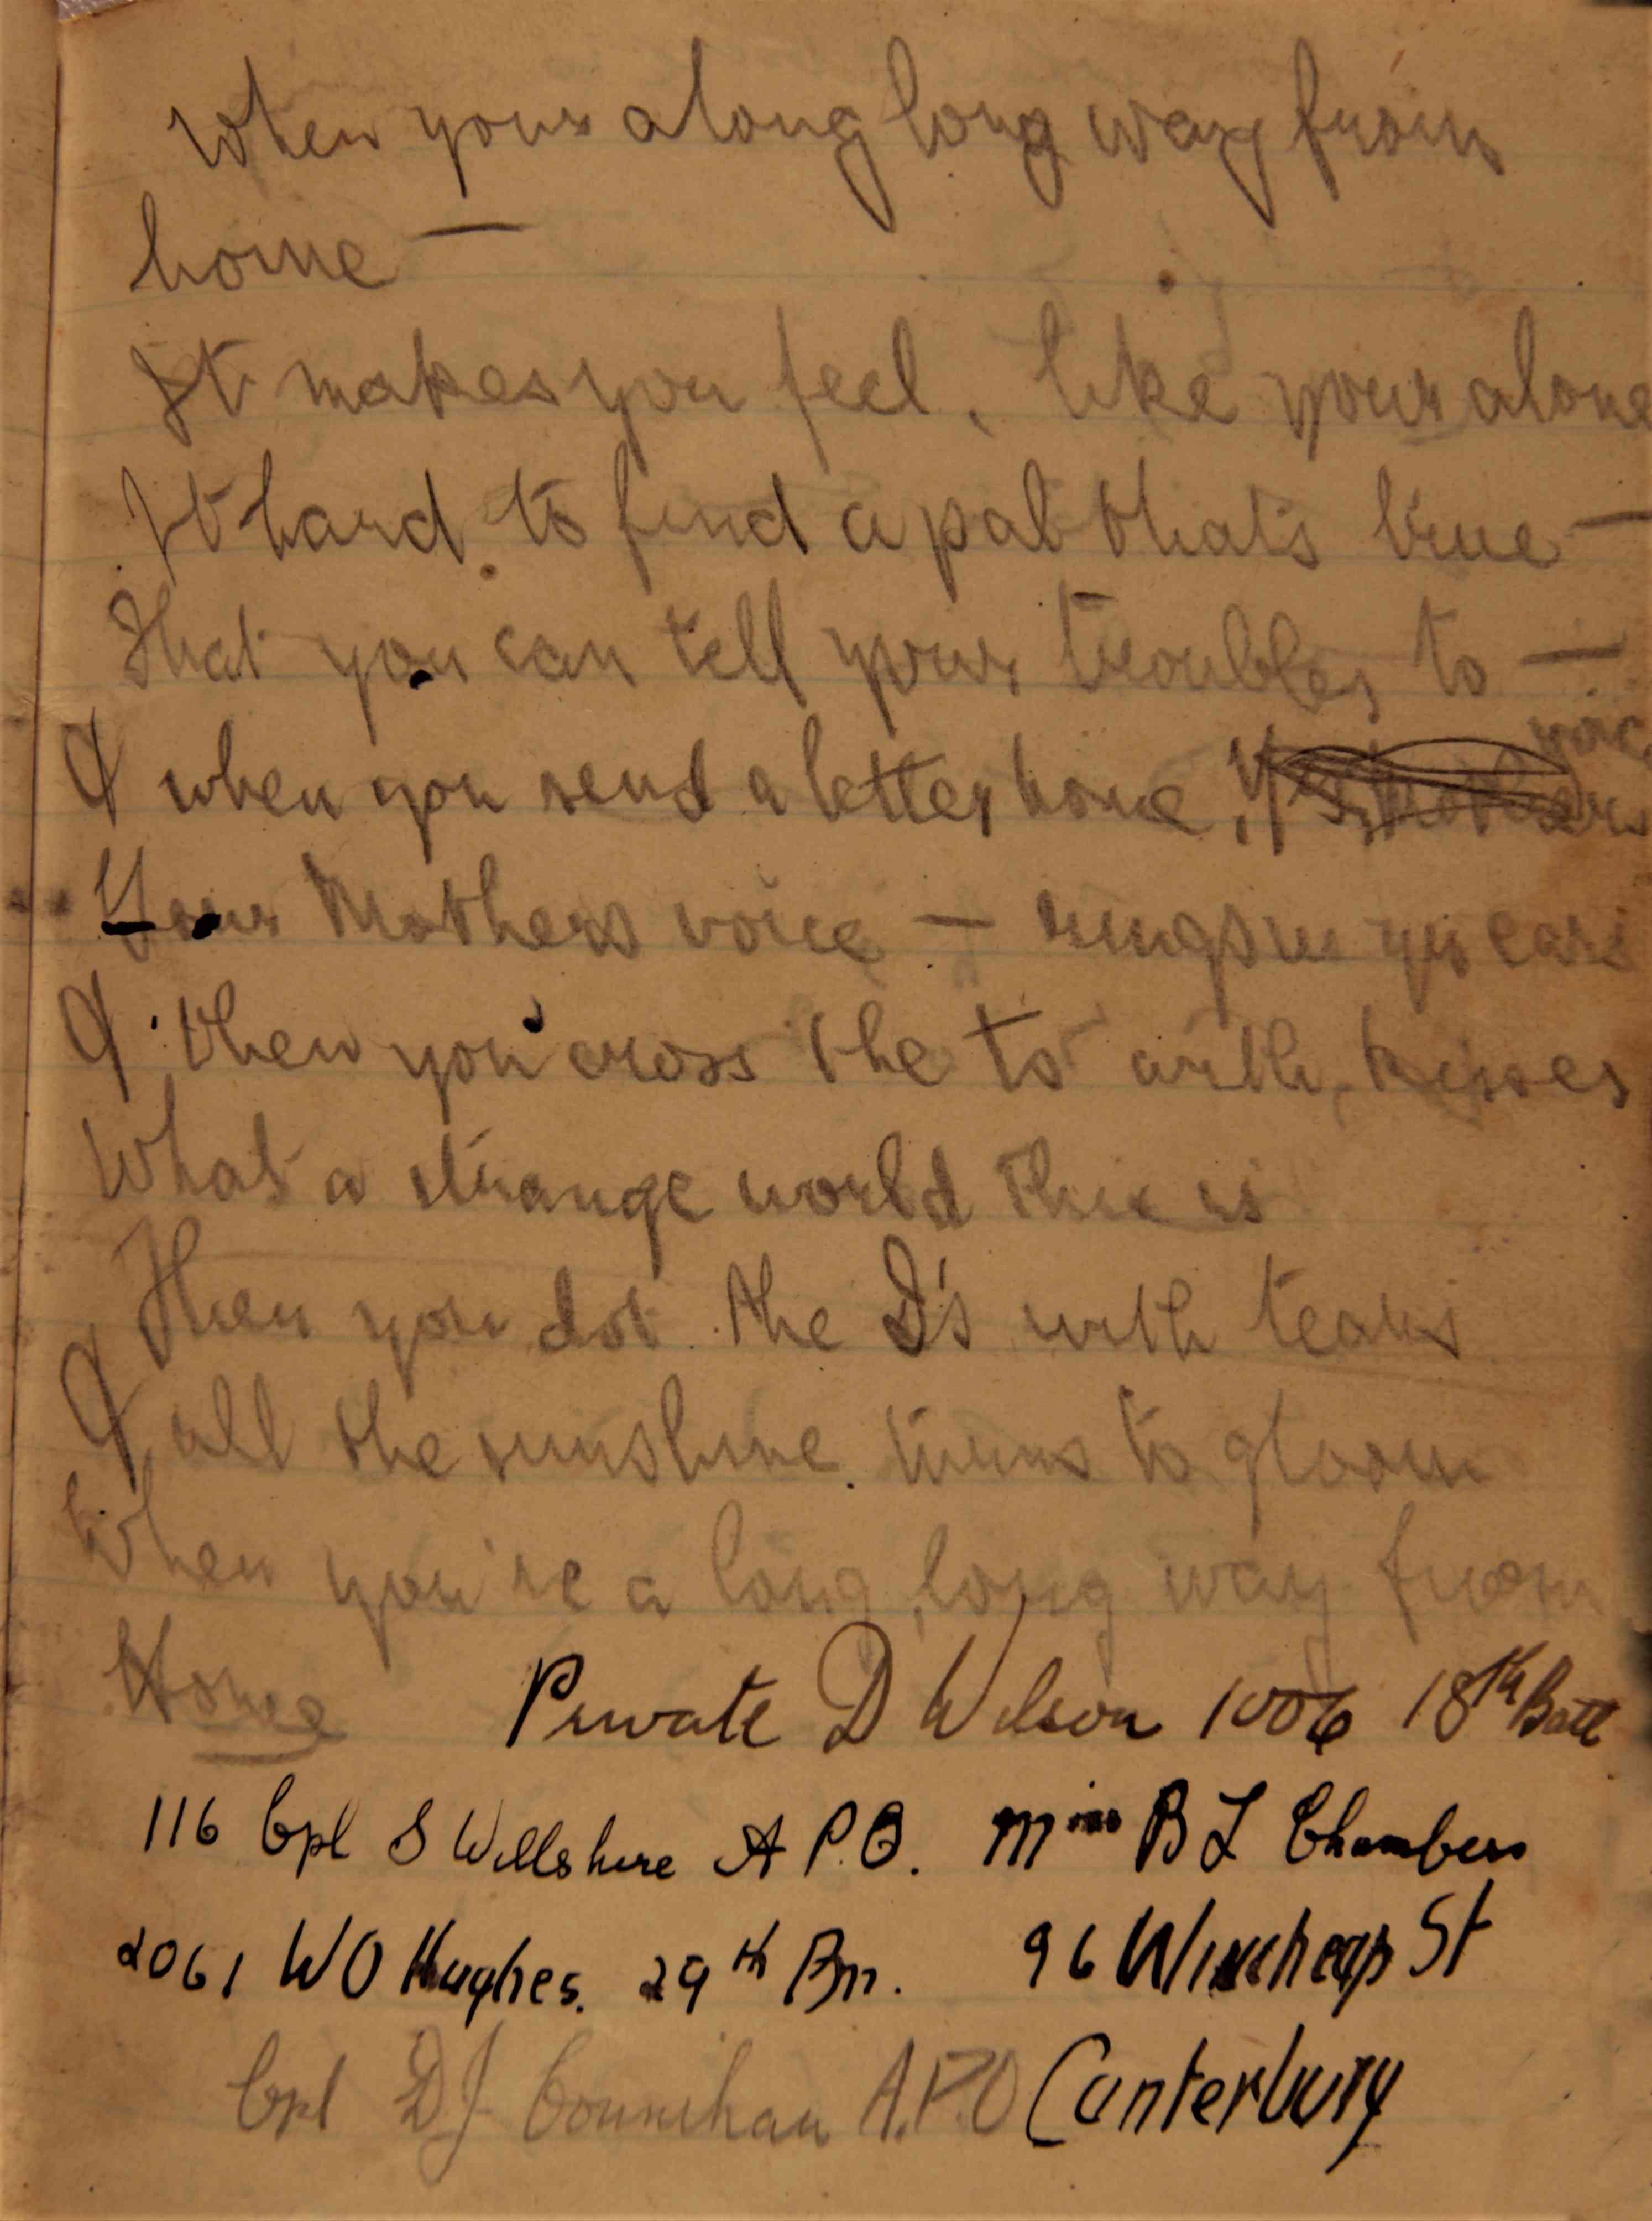 When your along long way from
home —
It makes you feel, like your alone
It hard to find a pal that's true —
That you can tell your troubles to —
& when you send a letter home,
Your Mothers voice — rings in yr ears
& then you cross the ts with, kisses
What a strange world this is
Then you dot the I's with tears
& all the sunshine turns to gloom
When you're a long, long way from
Home Private D Wilson 1006 18th Batt
116 Cpl S Willshire A P.O. Miss B L Chambers
2061 W O Hughes. 29th Bn. 96 Wincheap St
Cpl D J Counihan A.P.O Canterbury